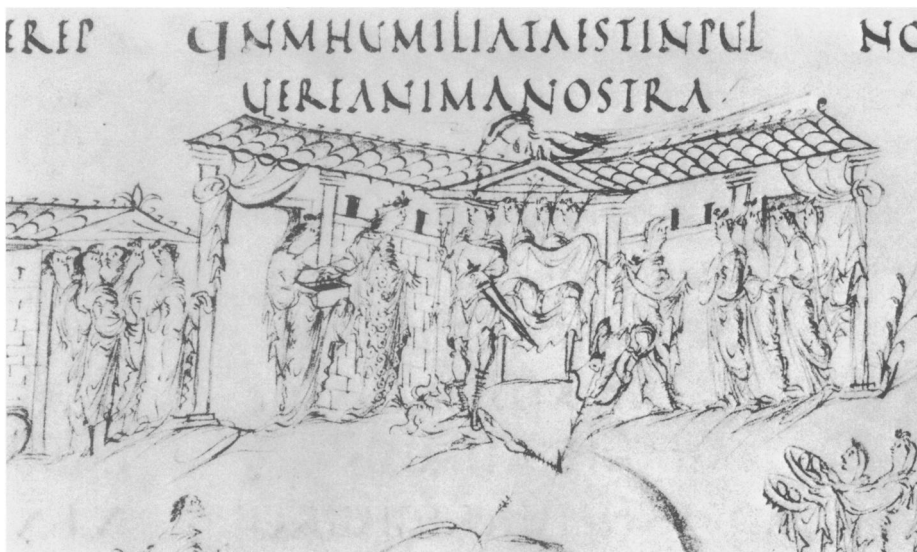 EREP QNMHUMILIATAESTINPUL NO
UEREANIMANOSTRA